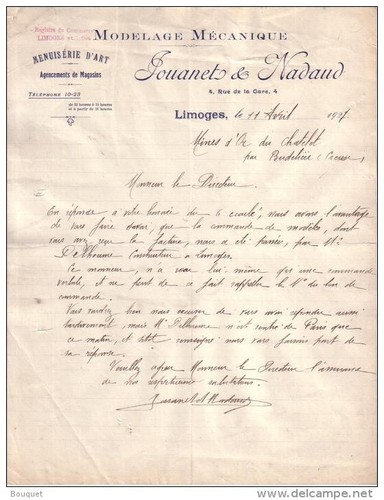 Registre du Commerce
LIMOGES
MODELAGE MÉCANIQUE
MENUISERIE D'ART
Agencements de Magasins
TÉLÉPHONE 10-23
Jouanet & Nadaud
4, Rue de la Gare, 4
Limoges, le 11 Avril 192
Mines d'Or du Chatelet
par Budelière (Creuse)
Monsieur le Directeur
En réponse à votre honorée du 6 écoulé, nous avons l'avantage
de vous faire savoir que la commande de modèles, dont
vous avez reçu la facture, nous a été passée, par Mr
Delhoume Constructeur à Limoges.
Ce monsieur, n'a lui même que une commande
verbale, et ne peut de ce fait rappeler le No du bon de
commande.
Vous voudrez bien nous excuser de vous avoir répondu aussi
tardivement, mais Mr Delhoume n'est rentré de Paris que
ce matin, et nous vous faisons part de
sa réponse.
Veuillez agréer Monsieur le Directeur l'assurance
de nos respectueuses salutations.
Jouanet et Nadaud
Bouquet
© delcampe.net